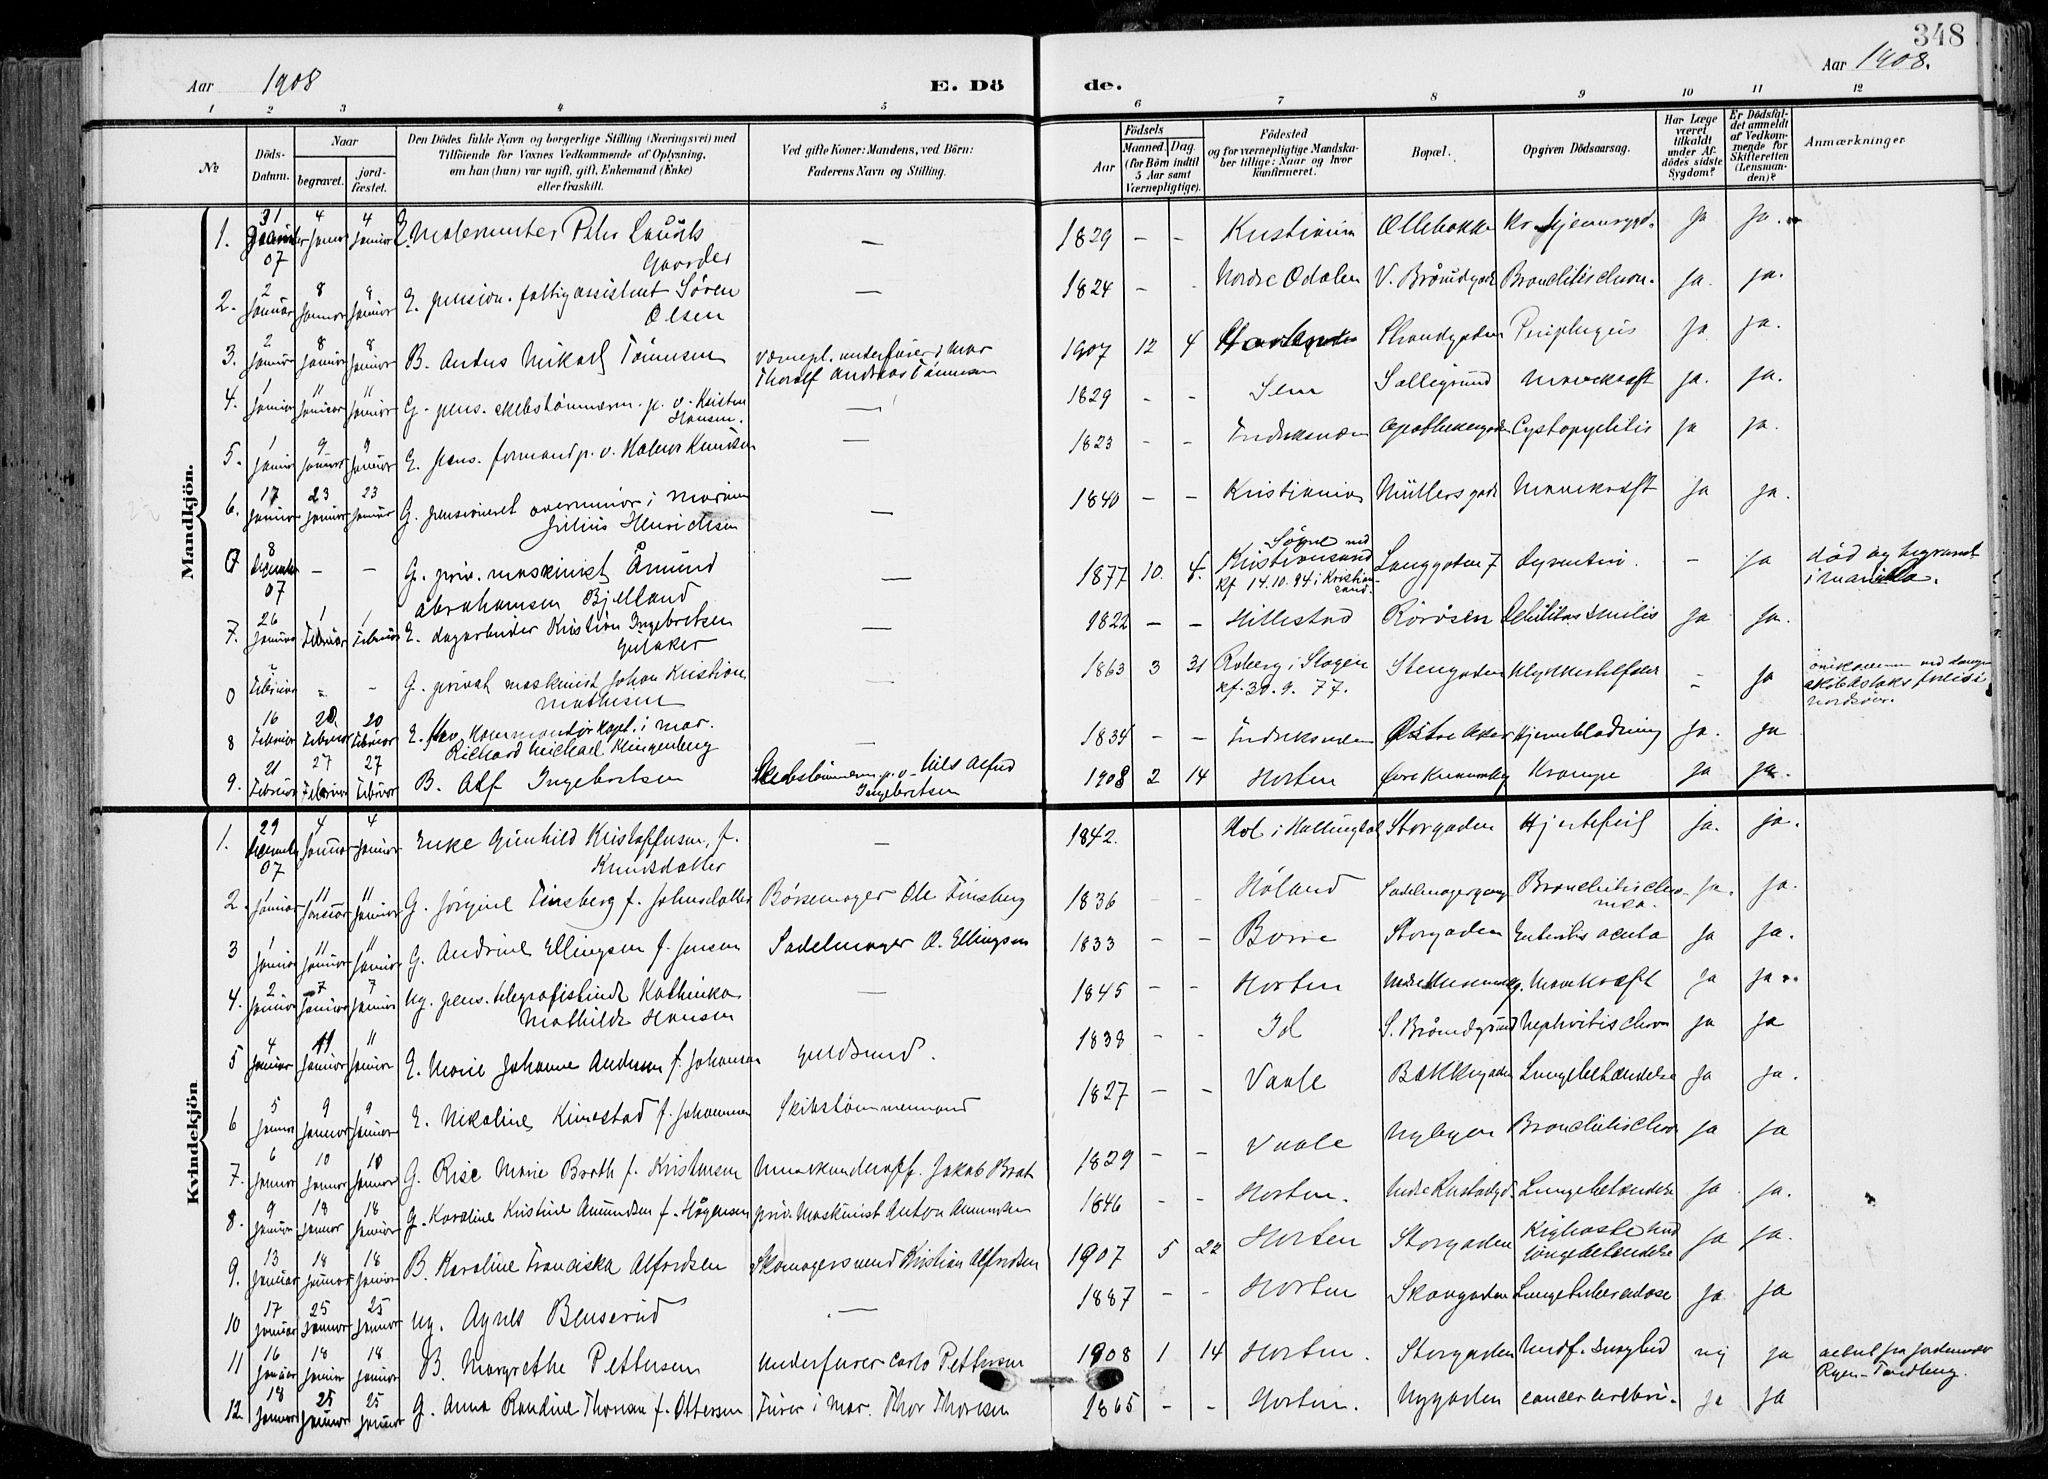 348
Aar 1908
E. Dö
de.
Aar 1908.
1 2 3 4 5 6 7 8 9 10 11 12
№
Döds-Datum.
Naar
begravet.
jord-fæstet.
Den Dödes fulde Navn og borgerlige Stilling (Næringsvei) med
Tilföiende for Voxnes Vedkommende af Oplysning,
om han (hun) var ugift, gift, Enkemand (Enke)
eller fraskilt.
Ved gifte Koner: Mandens, ved Börn:
Faderens Navn og Stilling.
Födsels
Aar
Maaned. Dag.
(for Börn indtil
5 Aar samt
Værnepligtige).
Födested
og for værnepligtige Mandska-
ber tillige: Naar og hvor
konfirmeret.
Bopæl.
Opgiven Dödsaarsag.
Har Læge
været
tilkaldt
under Af-
dödes sidste
Sygdom?
Er Dödsfal-
det anmeldt
af Vedkom-
mende for
Skifteretten
(Lensman-
den)?
Anmærkninger
Mandkjön.
1. 31 07 4 Januar 4 Januar E. Malermester Peter Lauritz Gaarder — 1829 — — Kristiania Ollebakke Ja Ja.
2. 2 Januar 8 Januar 8 Januar E. pension. fattigassistent Sören Olsen — 1824 - - Nordre Odalen V. Brårudgade Bronchitis chron. Ja. Ja.
3. 2 Januar 8 Januar 8 Januar B. Mikael Tönnesen Værnepl. underfurer i mar Thoralf Andreas Tönnesen 1907 12 4 Strandgaden Ja Ja.
4. 1 Januar 11 Januar 11 Januar G. pens. skibstömmerm. p. v. Kristen Hansen. — 1829 - - Sem Mavekræft Ja. Ja.
5. 1 Januar 9 Januar 9 Januar E. pens. formand p. v. Halvor Knudsen — 1823 - - Fredriksværn Apothekergaden Cystopyelitis Ja Ja.
6. 17 Januar 23 Januar 23 Januar G. pensioneret overminør i marinen Julius Henrichsen — 1840 - - Kristiania Müllersgade Mavekræft Ja Ja.
0 8 Desember 07 — — G. priv. maskinist Åmund Abrahamsen Bjelland — 1877 10. 4. Søgne ved Kristiansand kf. 14.10.94 i Kristiansand. Langgaden 7 Dysenteri. - Ja død og begravet i Manilla.
7. 26 Januar 1 Februar 1 Februar E. dagarbeider Kristian Ingebretsen — 1822 — — Hillestad Røråsen Debilitas senilis Ja Ja.
0 Februar - - G. privat maskinist Johan Kristian Mathisen — 1863 3 31 Roberg i Slagen kf. 30.9.77. Stengaden Ulykkestilfælde - Ja
8 16 Februar 20 Februar 20 Februar E. Kommandørkapt. i mar. Richard Michael Klingenberg 1834 - - Fredriksværn Østre Aker Hjerneblødning Ja. Ja
9. 21 Februar 27 Februar 27 Februar B. Alf Ingebretsen Skibstömmerm. p. v. Nils Alfred Ingebretsen 1908 2 14 Horten Krampe Ja Ja.
Kvindekjön
1. 29 Desember 07 4 Januar 4 Januar Enke Gunhild Kristoffersen, f. Knudsdatter — 1842. Hol i Hallingdal Storgaden Hjertefeil Ja. Ja.
2. 1 Januar 11 Januar 11 Januar G. Jörgine Finsberg f. Johnsdatter Børsemager Ole Finsberg 1836 - - Høland Sadelmagergangen Bronchitis chronica. Ja. Ja.
3 1 Januar 11 Januar 11 Januar G. Andrine Ellingsen f. Jensen Sadelmager O. Ellingsen 1833 - - Borre Storgaden Enteritis acuta Ja Ja.
4. 2 Januar 7 Januar 7 Januar Ug. pens. telegrafistinde Kathinka Mathilde Hansen — 1845 - - Horten Mavekræft Ja Ja
5 4 Januar 11 Januar 11 Januar E. Marie Johanne Andersen f. Johansen Guldsmed. 1838 - - Id S. Brårudgrund Nephritis chron Ja Ja
6 5 Januar 9 Januar 9 Januar E. Nikoline Kimestad f. Johannesen Skibstömmermand 1827 - - Vaale Bakkegaden Lungebetændelse Ja Ja.
7. 6 Januar 10 Januar 10 Januar G. Rise Marie Brath f. Kristensen Jakob Brat 1829 - - Vaale Nybyen Bronchitis chron Ja Ja
8. 9 Januar 18 Januar 18 Januar G. Karoline Kristine Amundsen f. Hågensen priv. Maskinist Anton Amundsen 1846 - - Horten. Lungebetændelse Ja. Ja.
9. 13 Januar 18 Januar 18 Januar B. Karoline Franciska Alfredsen Skomagersvend Kristian Alfredsen 1907 5 22 Horten Storgaden Kighoste med lungebetændelse Ja Ja.
10 17 Januar 25 Januar 25 Januar Ug. Agnes Benserud — 1887 - - Horten Skovgaden Lungetuberculose Ja Ja
11 16 Januar 18 Januar 18 Januar B. Margrethe Pettersen Underfurer Carlo Pettersen 1908 1 14 Horten. Storgaden Medf. svaghed nej Ja attest fra jordemoder Ryen-Tandberg.
12. 18 Januar 25 Januar 25 Januar G. Anna Randine Thoresen f. Ottersen Furer i mar. Thor Thoresen 1865 - - Horten. Nygaden cancer cerebri Ja Ja